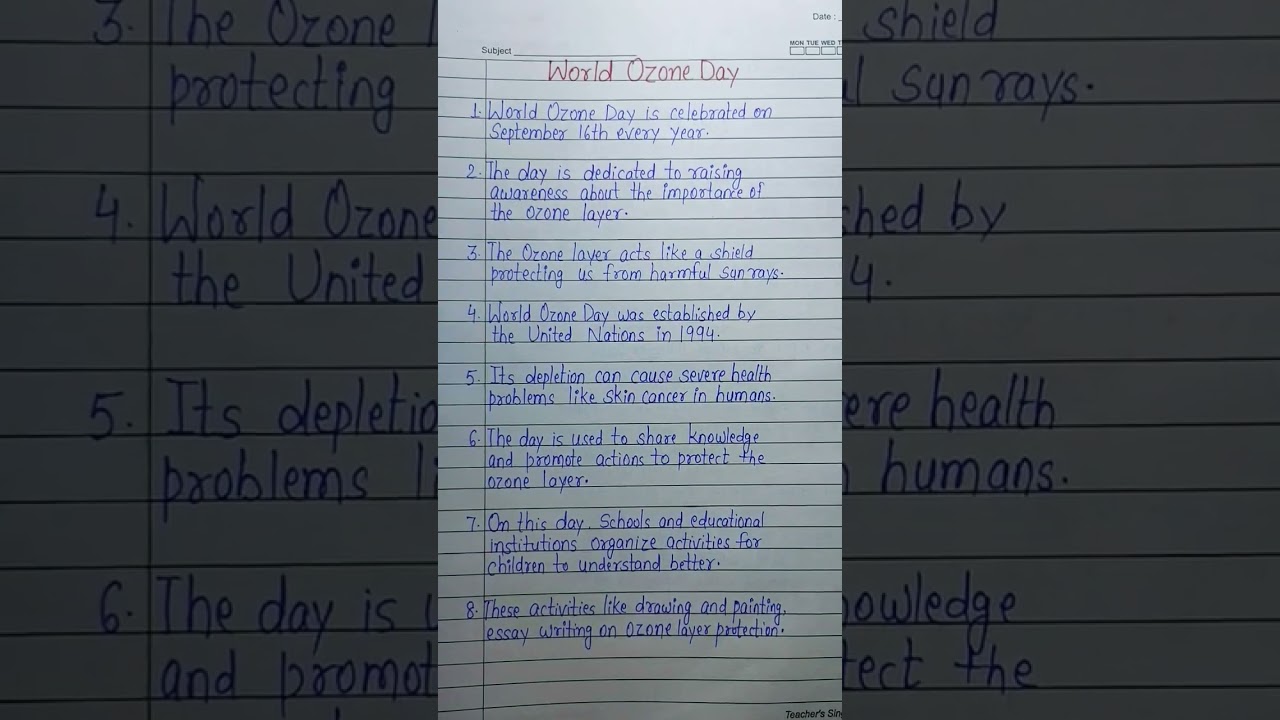 Date :
Subject
MON TUE WED T
World Ozone Day
1. World Ozone Day is celebrated on
September 16th every year.
2. The day is dedicated to raising
awareness about the importance of
the ozone layer.
3. The Ozone layer acts like a shield
protecting us from harmful sun rays.
4. World Ozone Day was established by
the United Nations in 1994.
5. Its depletion can cause severe health
problems like skin cancer in humans.
6. The day is used to share knowledge
and promote actions to protect the
ozone layer.
7. On this day, Schools and educational
institutions organize activities for
children to understand better.
8. These activities like drawing and painting,
essay writing on ozone layer protection.
Teacher's Sin
3. The Ozone l
protecting
4. World Ozone
the United
5. Its depletio
problems li
6. The day is u
and promot
shield
l sun rays.
hed by
4.
ere health
humans.
owledge
tect the